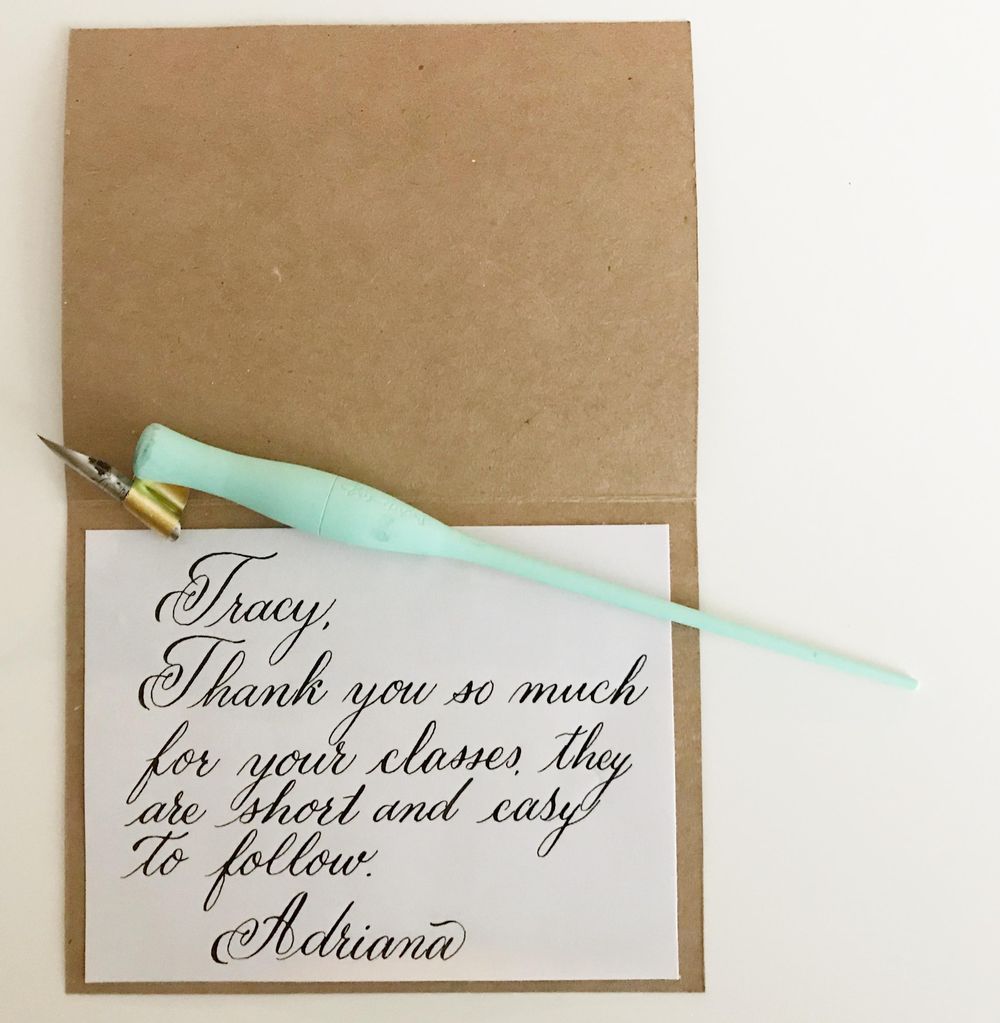 Tracy,
Thank you so much
for your classes. they
are short and easy
to follow.
Adriana